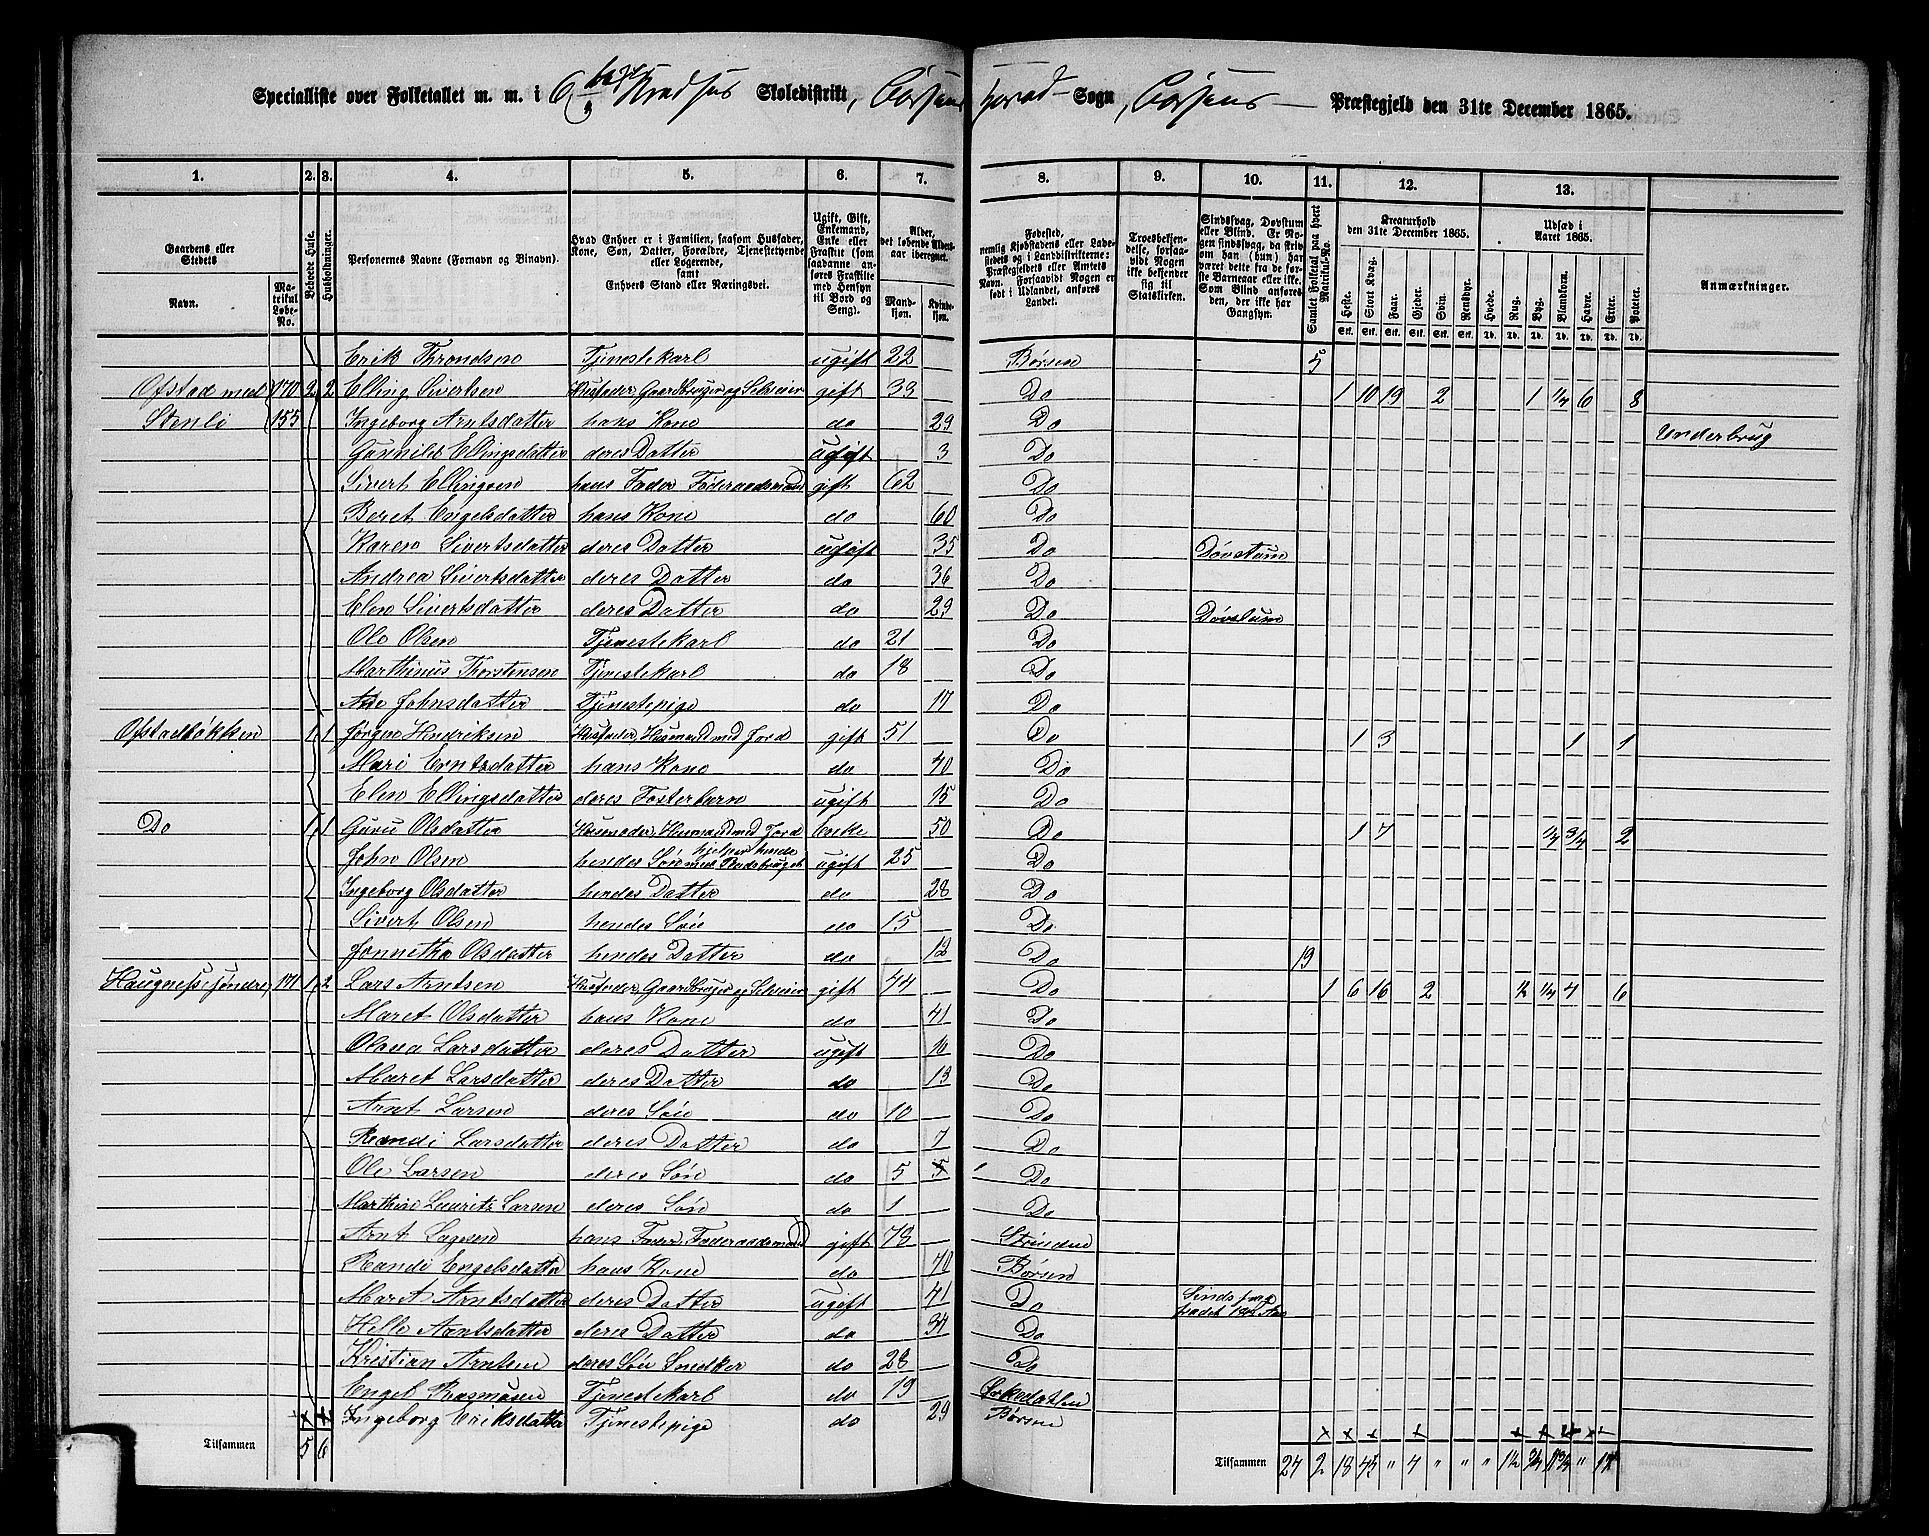 Specialliste over Folketallet m. m. i 6te Skoledistrikt, Børsens Sogn, Børsens Præstegjeld den 31te December 1865.
1. 2. 3. 4. 5. 6. 7. 8. 9. 10. 11. 12. 13.
Gaardens eller Stedets
Navn. Matrikul Løbe-No.
Bebоеdе Huse.
Husholdninger.
Personernes Navne (Fornavn og Binavn).
Hvad Enhver er i Familien, saasom Husfader, Kone, Søn, Datter, Forældre, Tjenestetyende eller Logerende, samt Enhvers Stand eller Næringsvei.
Ugift, Gift, Enkemand, Enke eller Fraskilt (som saadanne anføres Fraskilte med Hensyn til Bord og Seng).
Alder, det løbende Aldersaar iberegnet.
Mandkjøn. Kvindekjøn.
Fødested, nemlig Kjøbstadens eller Ladestedets og i Landdistrikterne: Præstegjeldets eller Amtets Navn. Forsaavidt Nogen er født i Udlandet, anføres Landet.
Troesbekjendelse, forsaavidt Nogen ikke bekjender sig til Statskirken.
Sindssvag, Døvstum eller Blind. Er Nogen sindssvag, da skriv om han (hun) har været dette fra de første Barneaar eller ikke. Som Blind anføres den, der ikke har Gangsyn.
Samlet Folketal paa hvert Matrikul-No.
Kreaturhold den 31te December 1865.
Heste. Stort Kvæg. Faar. Gjeder. Svin. Rensdyr.
Udsæd i Aaret 1865.
Hvede. Rug. Byg. Blandkorn. Havre. Erter. Poteter.
Anmærkninger.
Erik Throndsen Tjenestekarl ugift 22 Børsen 5
Ofstad med 170 2 2 Elling Sivertsen Husfader, Gaardbruger og Selveier gift 33 Do 1 10 19 2 1 1/4 6 8
Stenli 155 Ingeborg Arntsdatter hans Kone do 29 Do Underbrug
Gunnild Ellingsdatter deres Datter ugift 3 Do
Sivert Ellingsen hans Fader Føderaadsmand gift 62 Do
Beret Engelsdatter hans Kone do 60 Do
Karen Sivertsdatter deres Datter ugift 35 Do Døvstum
Andrea Sivertsdatter deres Datter do 36 Do
Elen Sivertsdatter deres Datter do 29 Do Døvstum
Ole Olsen Tjenestekarl do 21 Do
Marthinus Thorstensen Tjenestekarl do 18 Do
Ane Johnsdatter Tjenestepige do 17 Do
Ofstadløkken 1 1 Jørgen Hendriksen Husfader, Husmand med Jord gift 51 Do 1 3 1 1
Mari Erntsdatter hans Kone do 40 Do
Elen Ellingsdatter deres Fosterbarn ugift 15 Do
Do 1 1 Guru Olsdatter Husmoder, Husmand med Jord Enke 50 Do 1 7 1/4 3/4 2
John Olsen hendes Søn hjelper hende med Jordbruget ugift 25 Do
Ingeborg Olsdatter hendes Datter do 28 Do
Sivert Olsen hendes Søn do 15 Do
Jonnetha Olsdatter hendes Datter do 12 Do 19
171 1 2 Lars Arntsen Husfader, Gaardbruger og Selveier gift 44 Do 1 6 16 2 1/2 1/4 4 6
Maret Olsdatter hans Kone do 41 Do
Olava Larsdatter deres Datter ugift 16 Do
Maret Larsdatter deres Datter do 13 Do
Arnt Larsen deres Søn do 10 Do
Randi Larsdatter deres Datter do 7 Do
Ole Larsen deres Søn do 5 Do
Marthin Lauritz Larsen deres Søn do 1 Do
Arnt Larsen hans Fader, Føderaadsmand gift 78 Strinden
Randi Engelsdatter hans Kone do 70 Børsen
Maret Arntsdatter deres Datter ugift 41 Do
Helle Arntsdatter deres Datter do 34 Do
Kristian Arntsen deres Søn Snedker do 28 Do
Engel Rasmusen Tjenestekarl do 19 Orkedalen
Ingeborg Eriksdatter Tjenestepige do 29 Børsen
Tilsammen 5 6 Tilsammen 24 2 18 45 " 4 " " "